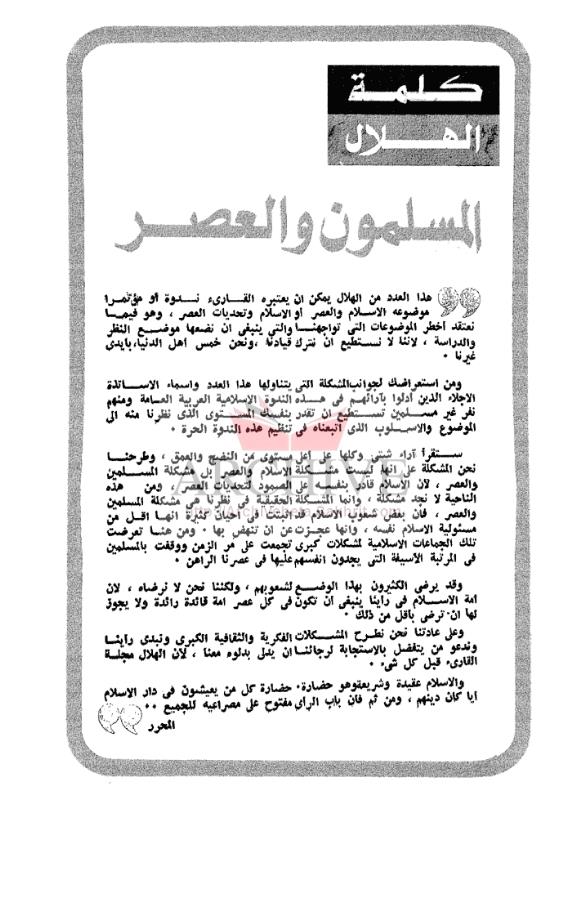 كلمة
الهلال
المسلمون والعصر
هذا العدد من الهلال يمكن ان يعتبره القارىء ندوة أو مؤتمرا
موضوعه الاسلام والعصر أو الاسلام وتحديات العصر ، وهو فيما
نعتقد أخطر الموضوعات التى تواجهنا والتى ينبغى ان نضعها موضع النظر
والدراسة ، لاننا لا نستطيع ان نترك قيادنا ،ونحن خمس اهل الدنيا،بأيدى
غيرنا ٠
ومن استعراضك لجوانب المشكلة التى يتناولها هذا العدد واسماء الاساتذة
الاجلاء الذين أدلوا بآرائهم فى هذه الندوة الاسلامية العربية العامة ومنهم
نفر غير مسلمين تستطيع ان تقدر بنفسك المستوى الذى نظرنا منه الى
الموضوع والاسلوب الذى اتبعناه فى تنظيم هذه الندوة الحرة ٠
ستقرأ آراء شتى وكلها على اعلى مستوى من النضج والعمق ، وطرحنا
نحن المشكلة على انها ليست مشكلة الاسلام والعصر بل مشكلة المسلمين
والعصر ، لان الاسلام قادر بنفسه على الصمود لتحديات العصر ، ومن هذه
الناحية لا نجد مشكلة ، وانما المشكلة الحقيقية فى نظرنا هى مشكلة المسلمين
والعصر ، فان بعض شعوب الاسلام قد اثبتت فى أحيان كثيرة انها اقل من
مسئولية الاسلام نفسه ، وانها عجزت عن ان تنهض بها ٠ ومن هنا تعرضت
تلك الجماعات الاسلامية لمشكلات كبرى تجمعت على مر الزمن ووقفت بالمسلمين
فى المرتبة الأسيفة التى يجدون انفسهم عليها فى عصرنا الراهن ٠
وقد يرضى الكثيرون بهذا الوضع لشعوبهم ، ولكننا نحن لا نرضاه ، لان
أمة الاسلام فى رأينا ينبغى ان تكون فى كل عصر امة قائدة رائدة ولا يجوز
لها ان ترضى بأقل من ذلك ٠
وعلى عادتنا نحن نطرح المشكلات الفكرية والثقافية الكبرى ونبدى رأينا
وندعو من يتفضل بالاستجابة لرجائنا ان يدلى بدلوه معنا ، لان الهلال مجلة
القارىء قبل كل شىء ٠
والاسلام عقيدة وشريعة وهو حضارة٠ حضارة كل من يعيشون فى دار الاسلام
أيا كان دينهم ، ومن ثم فان باب الرأى مفتوح على مصراعيه للجميع ٠٠
المحرر
ARCHIVE